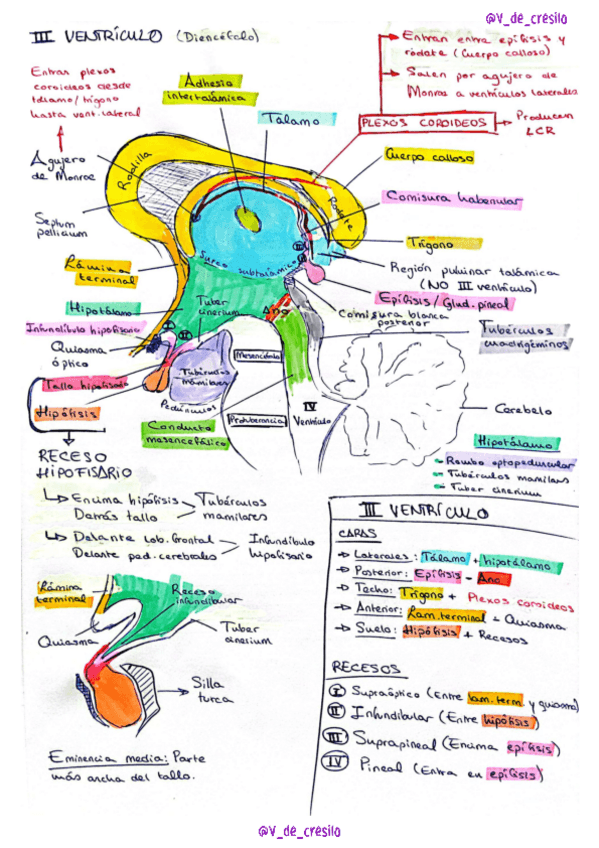 @V_de_cresilo
III VENTRÍCULO (Diencéfalo)
Entran plexos
coroideos desde
tálamo/trígono
hasta vent. lateral
Agujero
de Monroe
Septum
pellicium
Lámina
terminal
Hipotálamo
Infundíbulo hipofisario
Quiasma
óptico
Tallo hipofisario
Hipófisis
Adhesio
intertalámica
Tálamo
Entran entre epífisis y
rodete (Cuerpo calloso)
Salen por agujero de
Monroe a ventrículos laterales
PLEXOS COROIDEOS
Producen
LCR
Cuerpo calloso
Comisura habenular
Trígono
Región pulvinar talámica
(NO III ventrículo)
Epífisis/Gland. pineal
Comisura blanca
posterior
Tubérculos
cuadrigéminos
Cerebelo
Rodilla
Rodete
Surco subtalámico
Tuber
cinerium
Ano
I
II
III
IV
Tubérculos
mamilares
Pedúnculos
Mesencéfalo
Protuberancia
IV
Ventrículo
Conducto
mesencefálico
Hipotálamo
- Rombo optopeduncular
- Tubérculos mamilars
- Tuber cinerium
RECESO
HIPOFISARIO
Encima hipófisis
Detrás tallo
Tubérculos
mamilares
Delante lob. frontal
Delante ped. cerebrales
Infundíbulo
hipofisario
Lámina
terminal
Receso
infundibular
Quiasma
Tuber
cinerium
Silla
turca
Eminencia media: Parte
más ancha del tallo.
III VENTRÍCULO
CARAS
Laterales: Tálamo + hipotálamo
Posterior: Epífisis - Ano
Techo: Trígono + Plexos coroideos
Anterior: Lam. terminal + Quiasma
Suelo: Hipófisis + Recesos
RECESOS
I Supraóptico (Entre lam. term. y quiasma)
II Infundibular (Entre hipófisis)
III Suprapineal (Encima epífisis)
IV Pineal (Entra en epífisis)
@V_de_cresilo